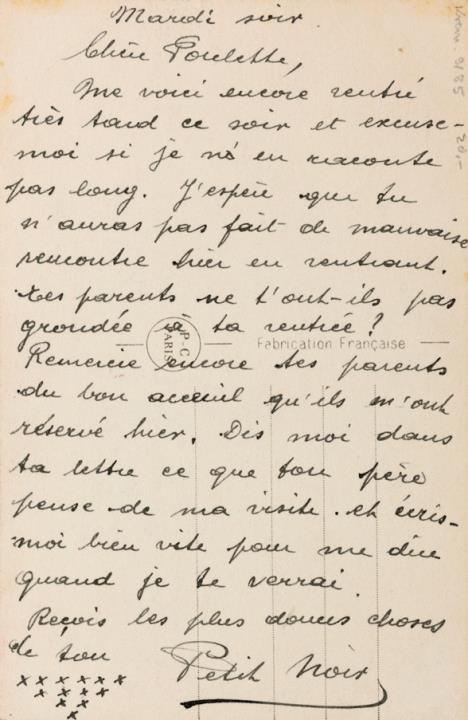 Mardi soir
Chère Poulette,
Me voici encore rentré
très tard ce soir et excuse-
moi si je n'en raconte
pas long. J'espère que tu
n'auras pas fait de mauvaise
rencontre hier en rentrant.
Tes parents ne t'ont-ils pas
grondée à ta rentrée ?
P-C
PARIS
Fabrication Française
Remercie encore tes parents
du bon accueil qu'ils m'ont
réservé hier. Dis moi dans
ta lettre ce que ton père
pense de ma visite. et écris-
moi bien vite pour me dire
quand je te verrai.
Reçois les plus douces choses
de ton
Petit Noir
x x x x x x
x x x x
x x
x